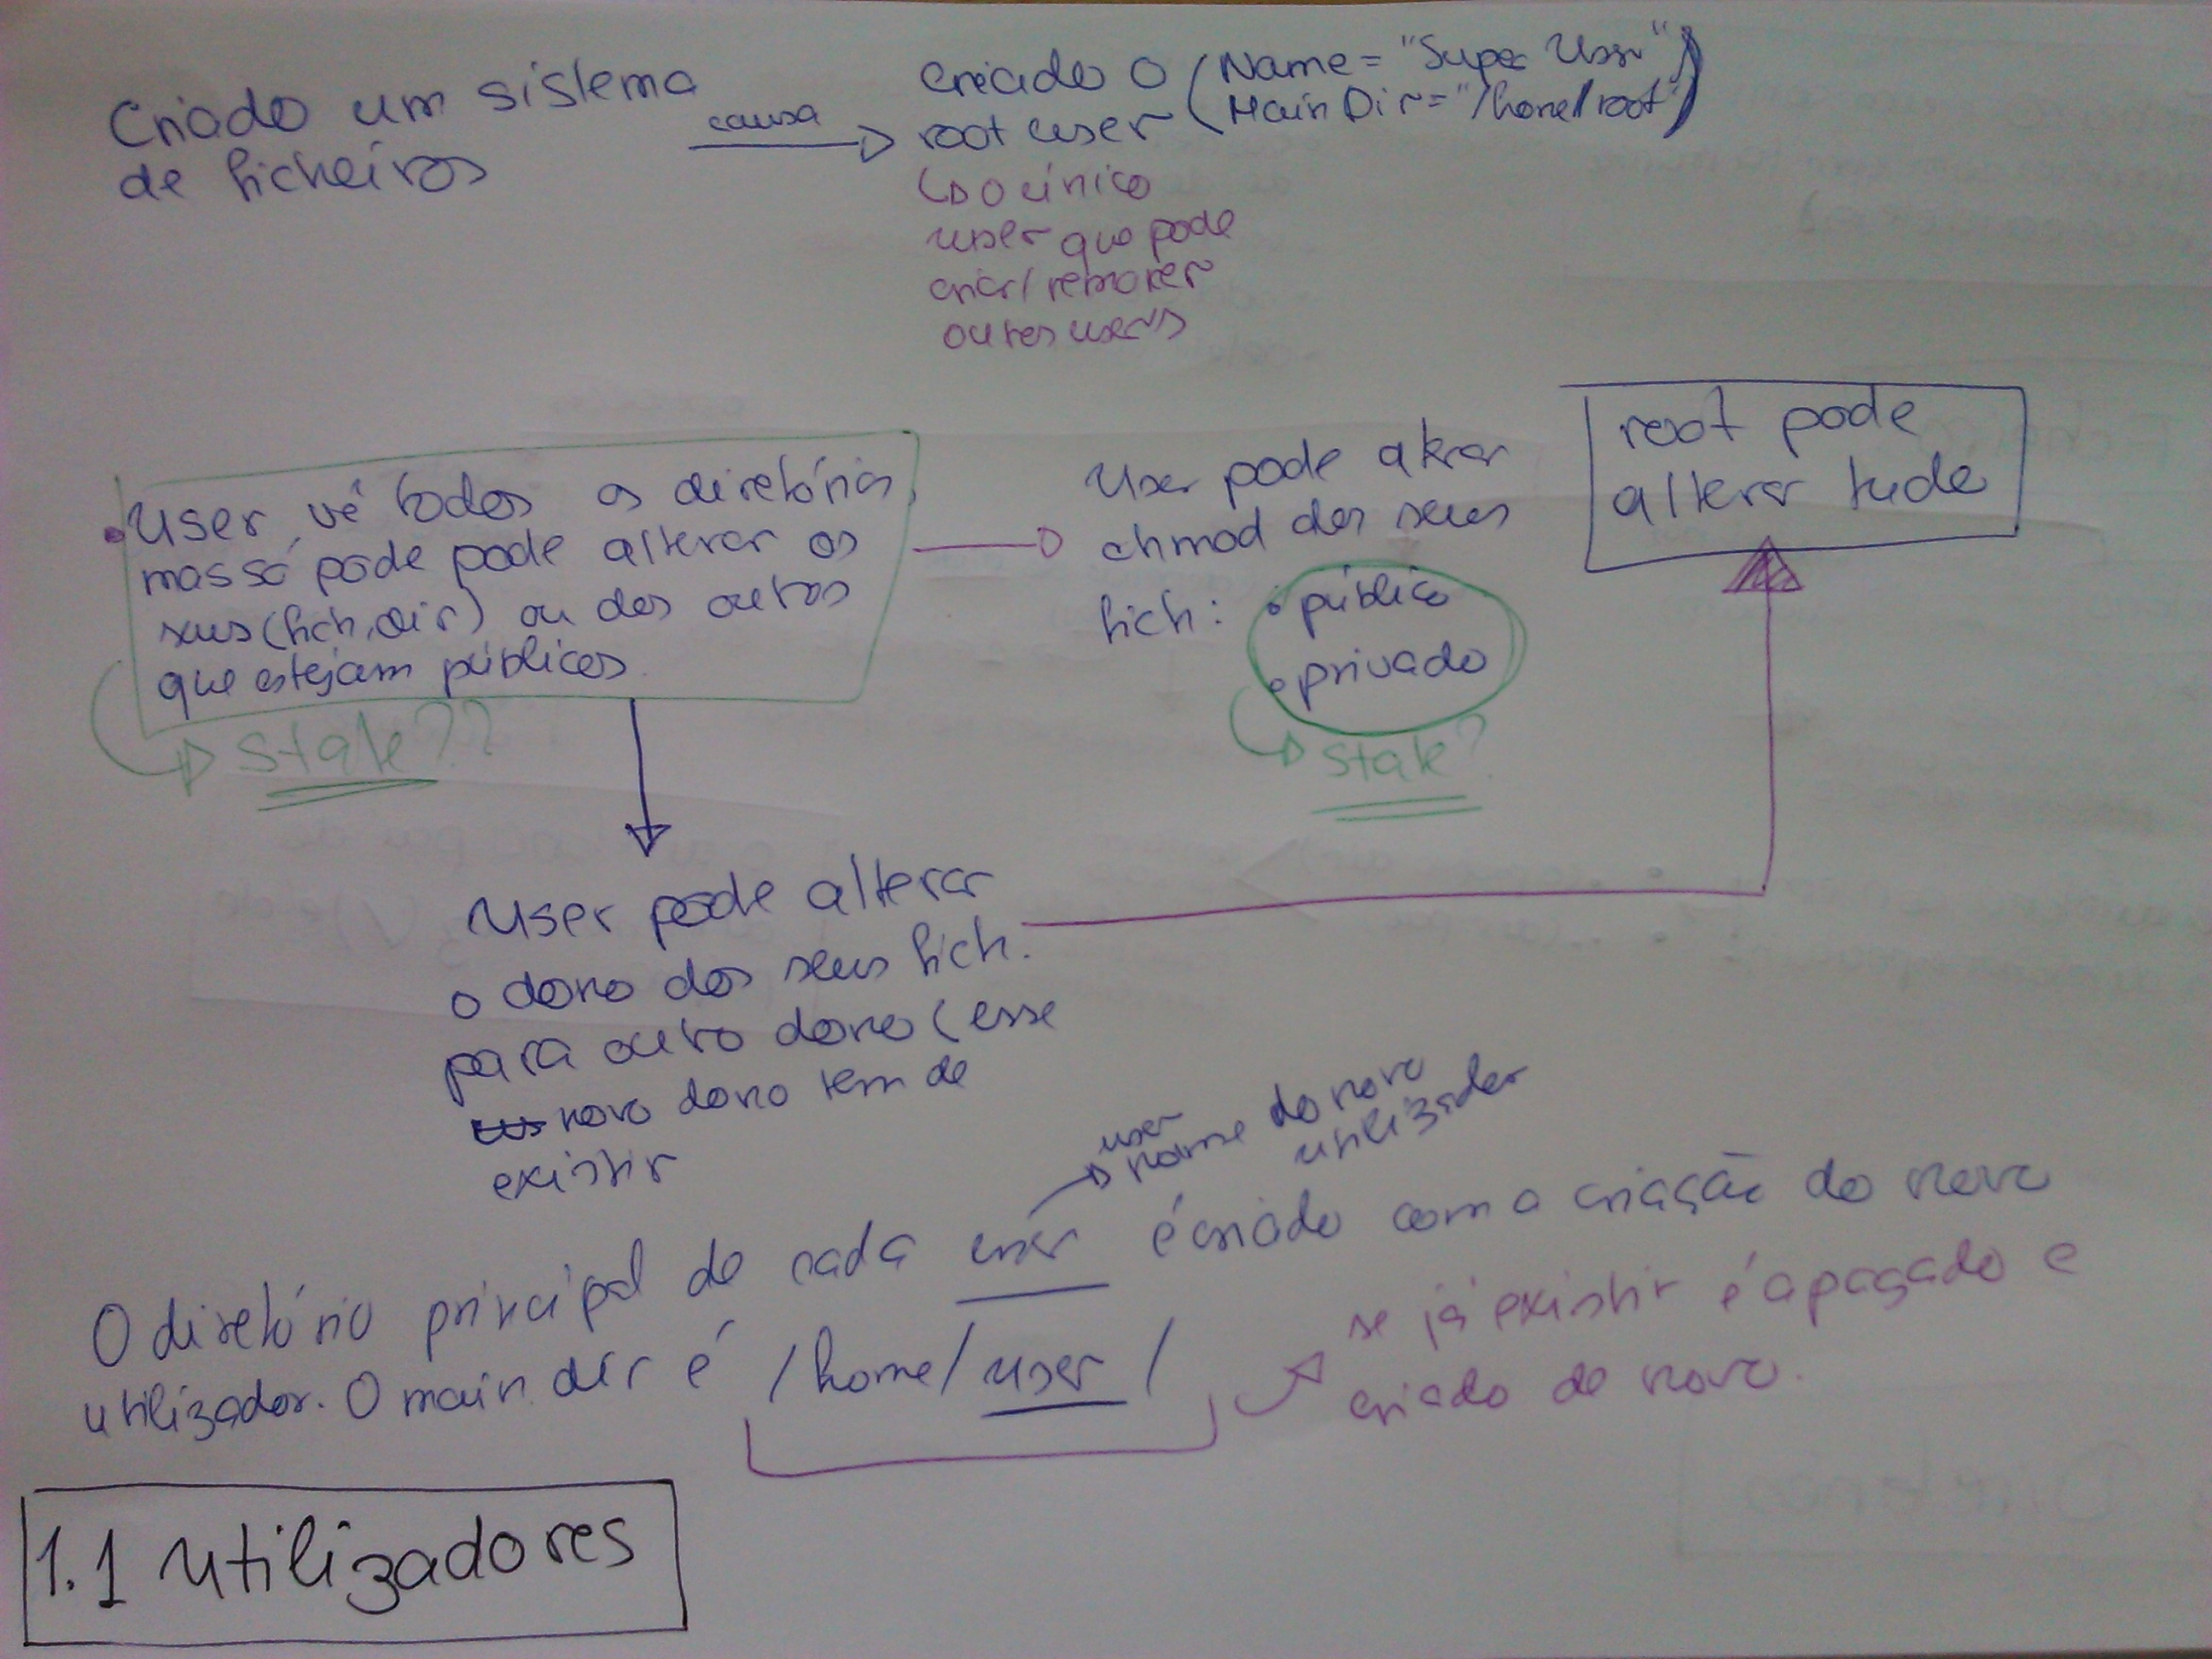 Criado um sistema
de ficheiros
causa
criado o
root user
(Name = "Super User"
Main Dir = "/home/root")
↳ o único
user que pode
criar/remover
outros users
• User vê todos os diretórios,
mas só pode pode alterar os
seus (fich, dir) ou dos outros
que estejam públicos.
State??
User pode alterar
chmod dos seus
fich:
• público
• privado
State?
root pode
alterar tudo
User pode alterar
o dono dos seus fich.
para outro dono (esse
novo dono tem de
existir
user
name do novo
utilizador
O diretório principal de cada user é criado com a criação do novo
utilizador. O main dir é /home/user/
se já existir é apagado e
criado de novo.
1.1 Utilizadores